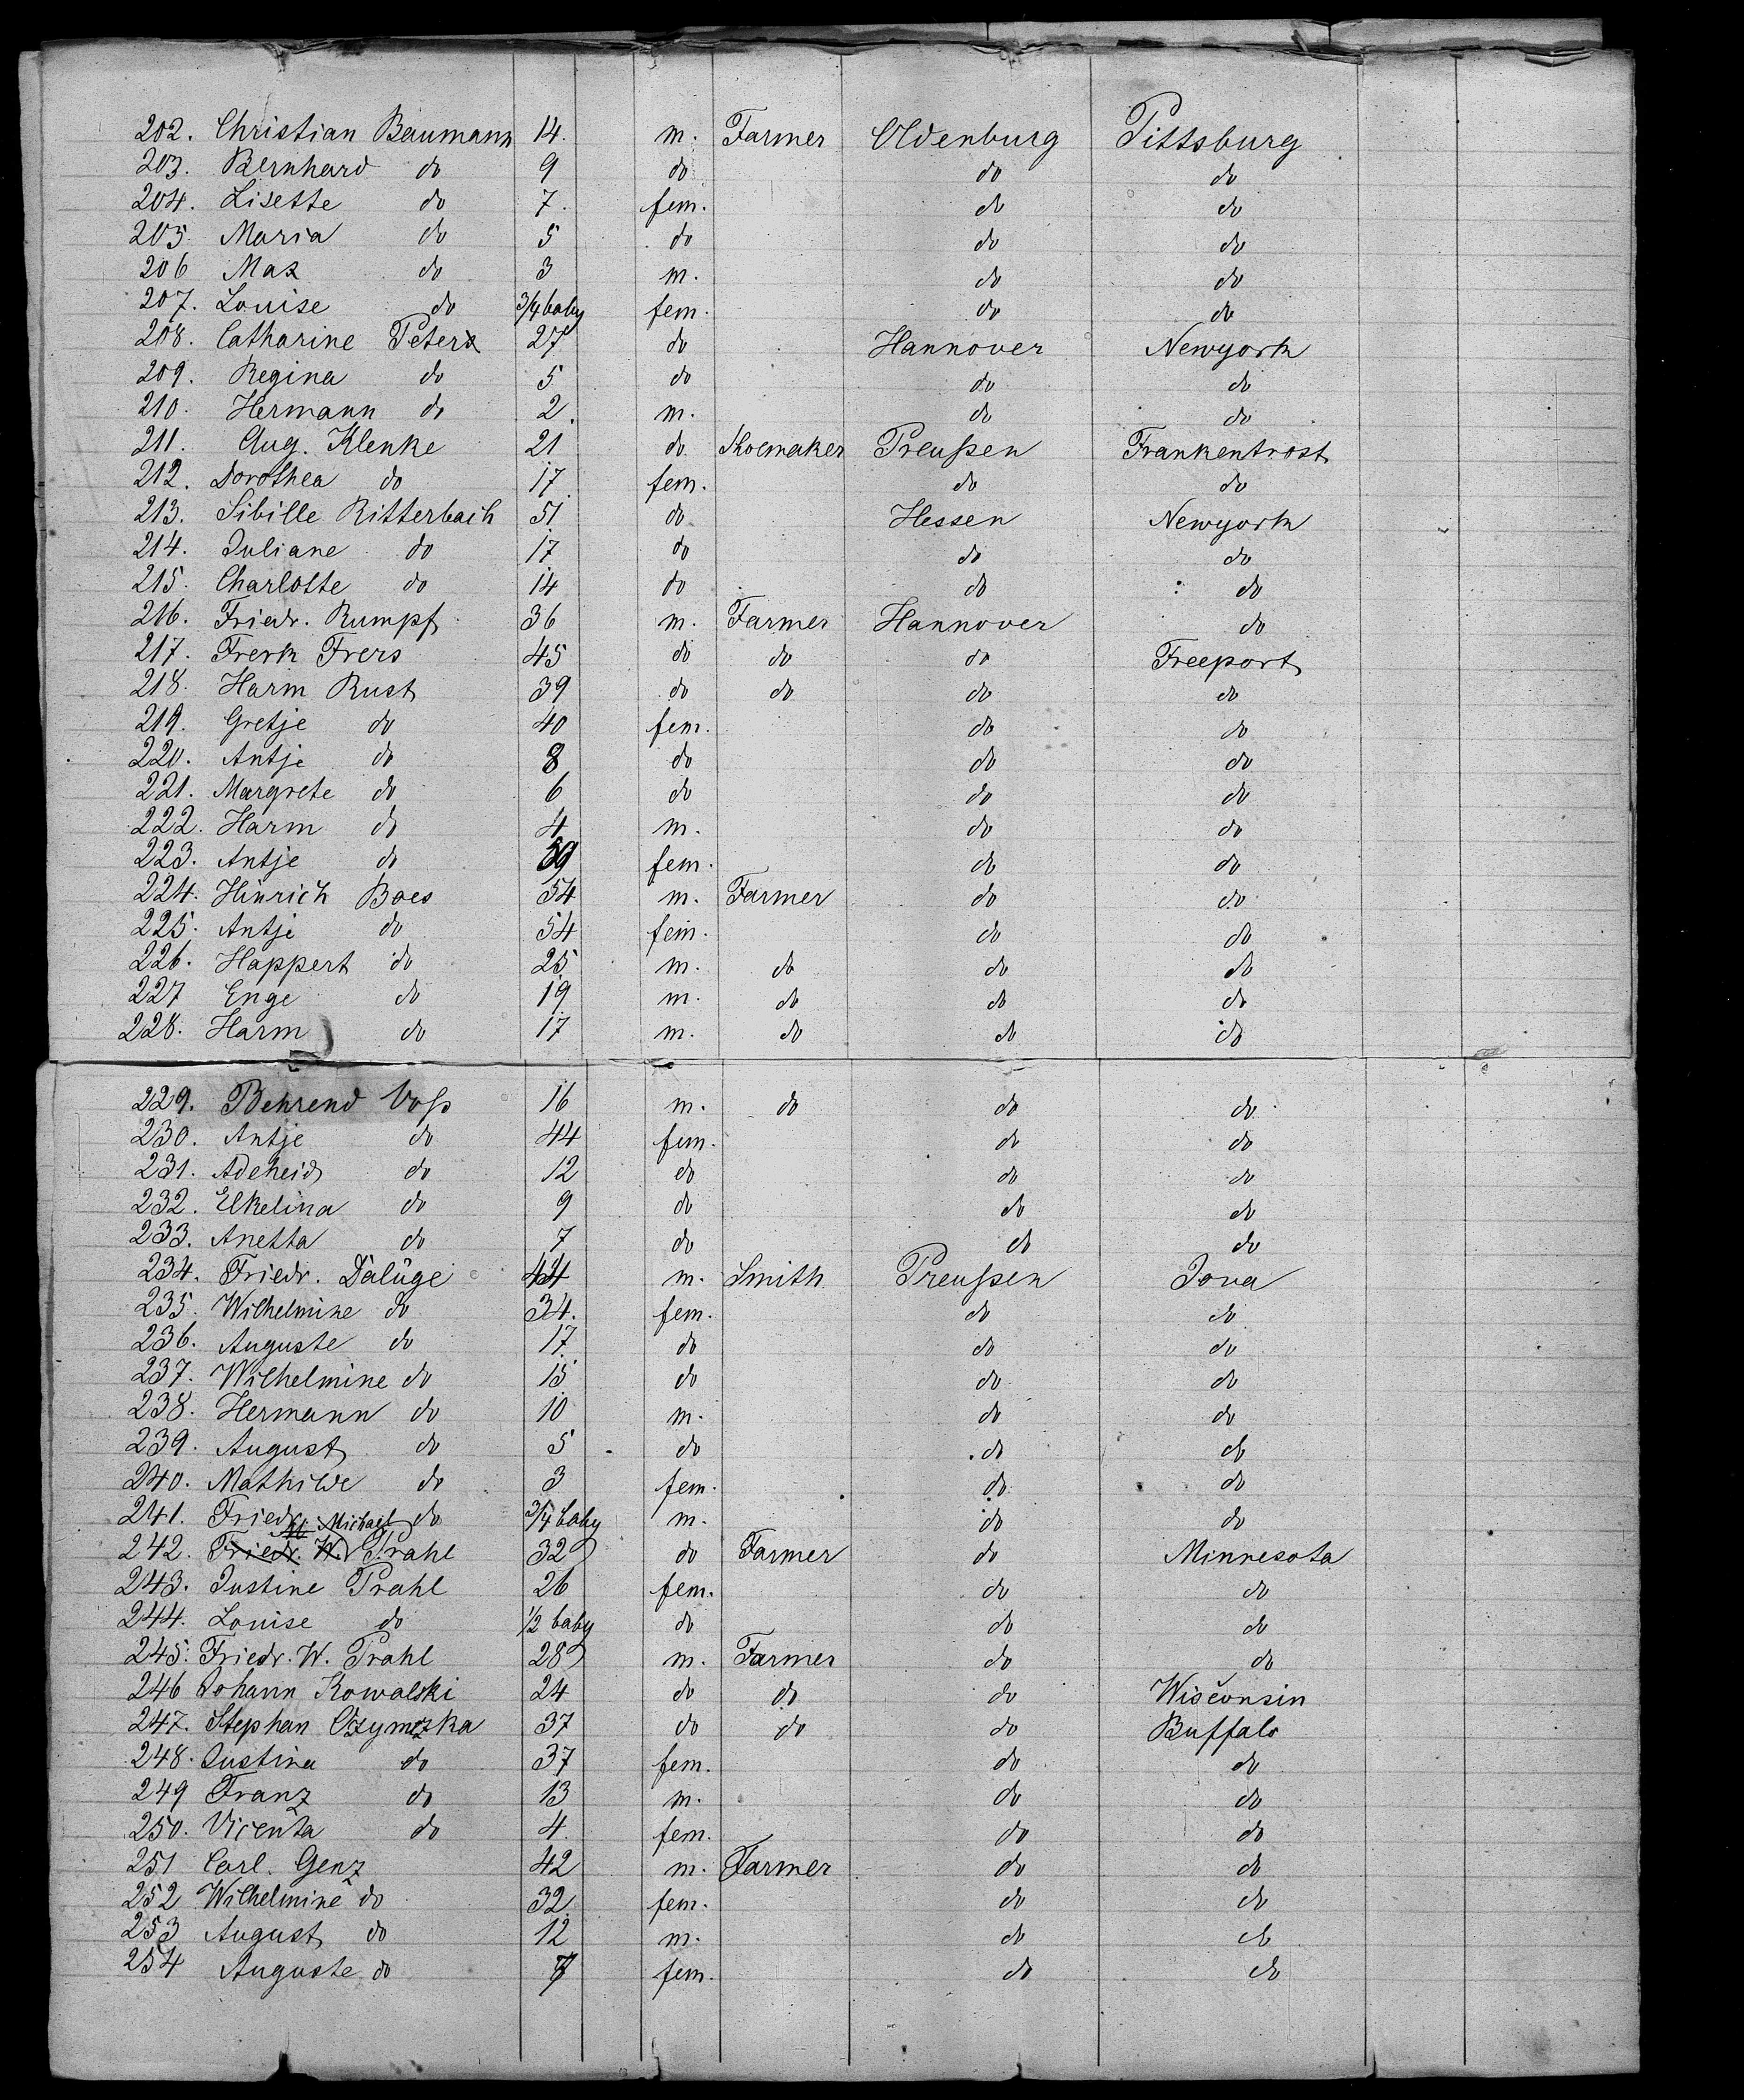 202. Christian Baumann 14. m. Farmer Oldenburg Pittsburg
203. Bernhard do 9 do do do
204. Lisette do 7. fem. do do
205. Maria do 5 do do do
206 Max do 3 m. do do
207. Louise do 3/4 baby fem. do do
208. Catharine Peters 27 do Hannover Newyork
209. Regina do 5 do do do
210. Hermann do 2. m. do do
211. Aug. Klenke 21 do Shoemaker Preußen Frankentrost
212. Dorothea do 17. fem. do do
213. Sibille Ritterbach 51 do Hessen Newyork
214. Juliane do 17 do do do
215. Charlotte do 14 do do do
216. Friedr. Rumpf 36 m. Farmer Hannover do
217. Frerk Frers 45 do do do Freeport
218. Harm Rust 39 do do do do
219. Gretje do 40 fem. do do
220. Antje do 8 do do do
221. Margrete do 6 do do do
222. Harm do 4 m. do do
223. Antje do fem. do do
224. Hinrich Boes 54 m. Farmer do do
225. Antje do 54 fem. do do
226. Happert do 25 m. do do do
227 Enge do 19 m. do do do
228. Harm do 17 m. do do do
229. Behrend Voß 16 m. do do do
230. Antje do 44 fem. do do
231. Adeheid do 12 do do do
232. Elkelina do 9 do do do
233. Anetta do 7 do do do
234. Friedr. Dalüge 44 m. Smith Preußen Iova
235. Wilhelmine do 34. fem. do do
236. Auguste do 17. do do do
237. Wilhelmine do 15 do do do
238. Hermann do 10 m. do do
239. August do 5 do do do
240. Mathilde do 3 fem. do do
241. Friedr. do 3/4 baby m. do do
Michael
242. Friedr. W. Prahl 32 do Farmer do Minnesota
243. Justine Prahl 26 fem. do do
244. Louise do 1/2 baby do do do
245. Friedr. W. Prahl 28 m. Farmer do do
246 Johann Kowalski 24 do do do Wisconsin
247. Stephan Czymczka 37 do do do Buffalo
248. Justina do 37 fem. do do
249 Franz do 13 m. do do
250. Vicenta do 4. fem. do do
251 Carl. Genz 42 m. Farmer do do
252 Wilhelmine do 32. fem. do do
253 August do 12 m. do do
254 Auguste do 7 fem. do do